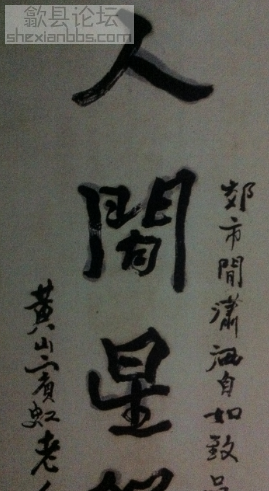 歙县论坛
shexianbbs.com
市間瀟洒自如致
人間星
黃山賓虹老